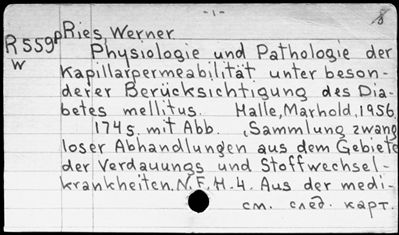 -1-
Ries, Werner
R559p
w
Physiologie und Pathologie der
Kapillarpermeabilität unter beson-
derer Berücksichtigung des Dia-
betes mellitus. Halle, Marhold, 1956.
174 s. mit Abb. (Sammlung zwang
loser Abhandlungen aus dem Gebiete
der Verdauungs und Stoffwechsel-
krankheiten. N.F., H.4. Aus der medi-
см. след. карт.